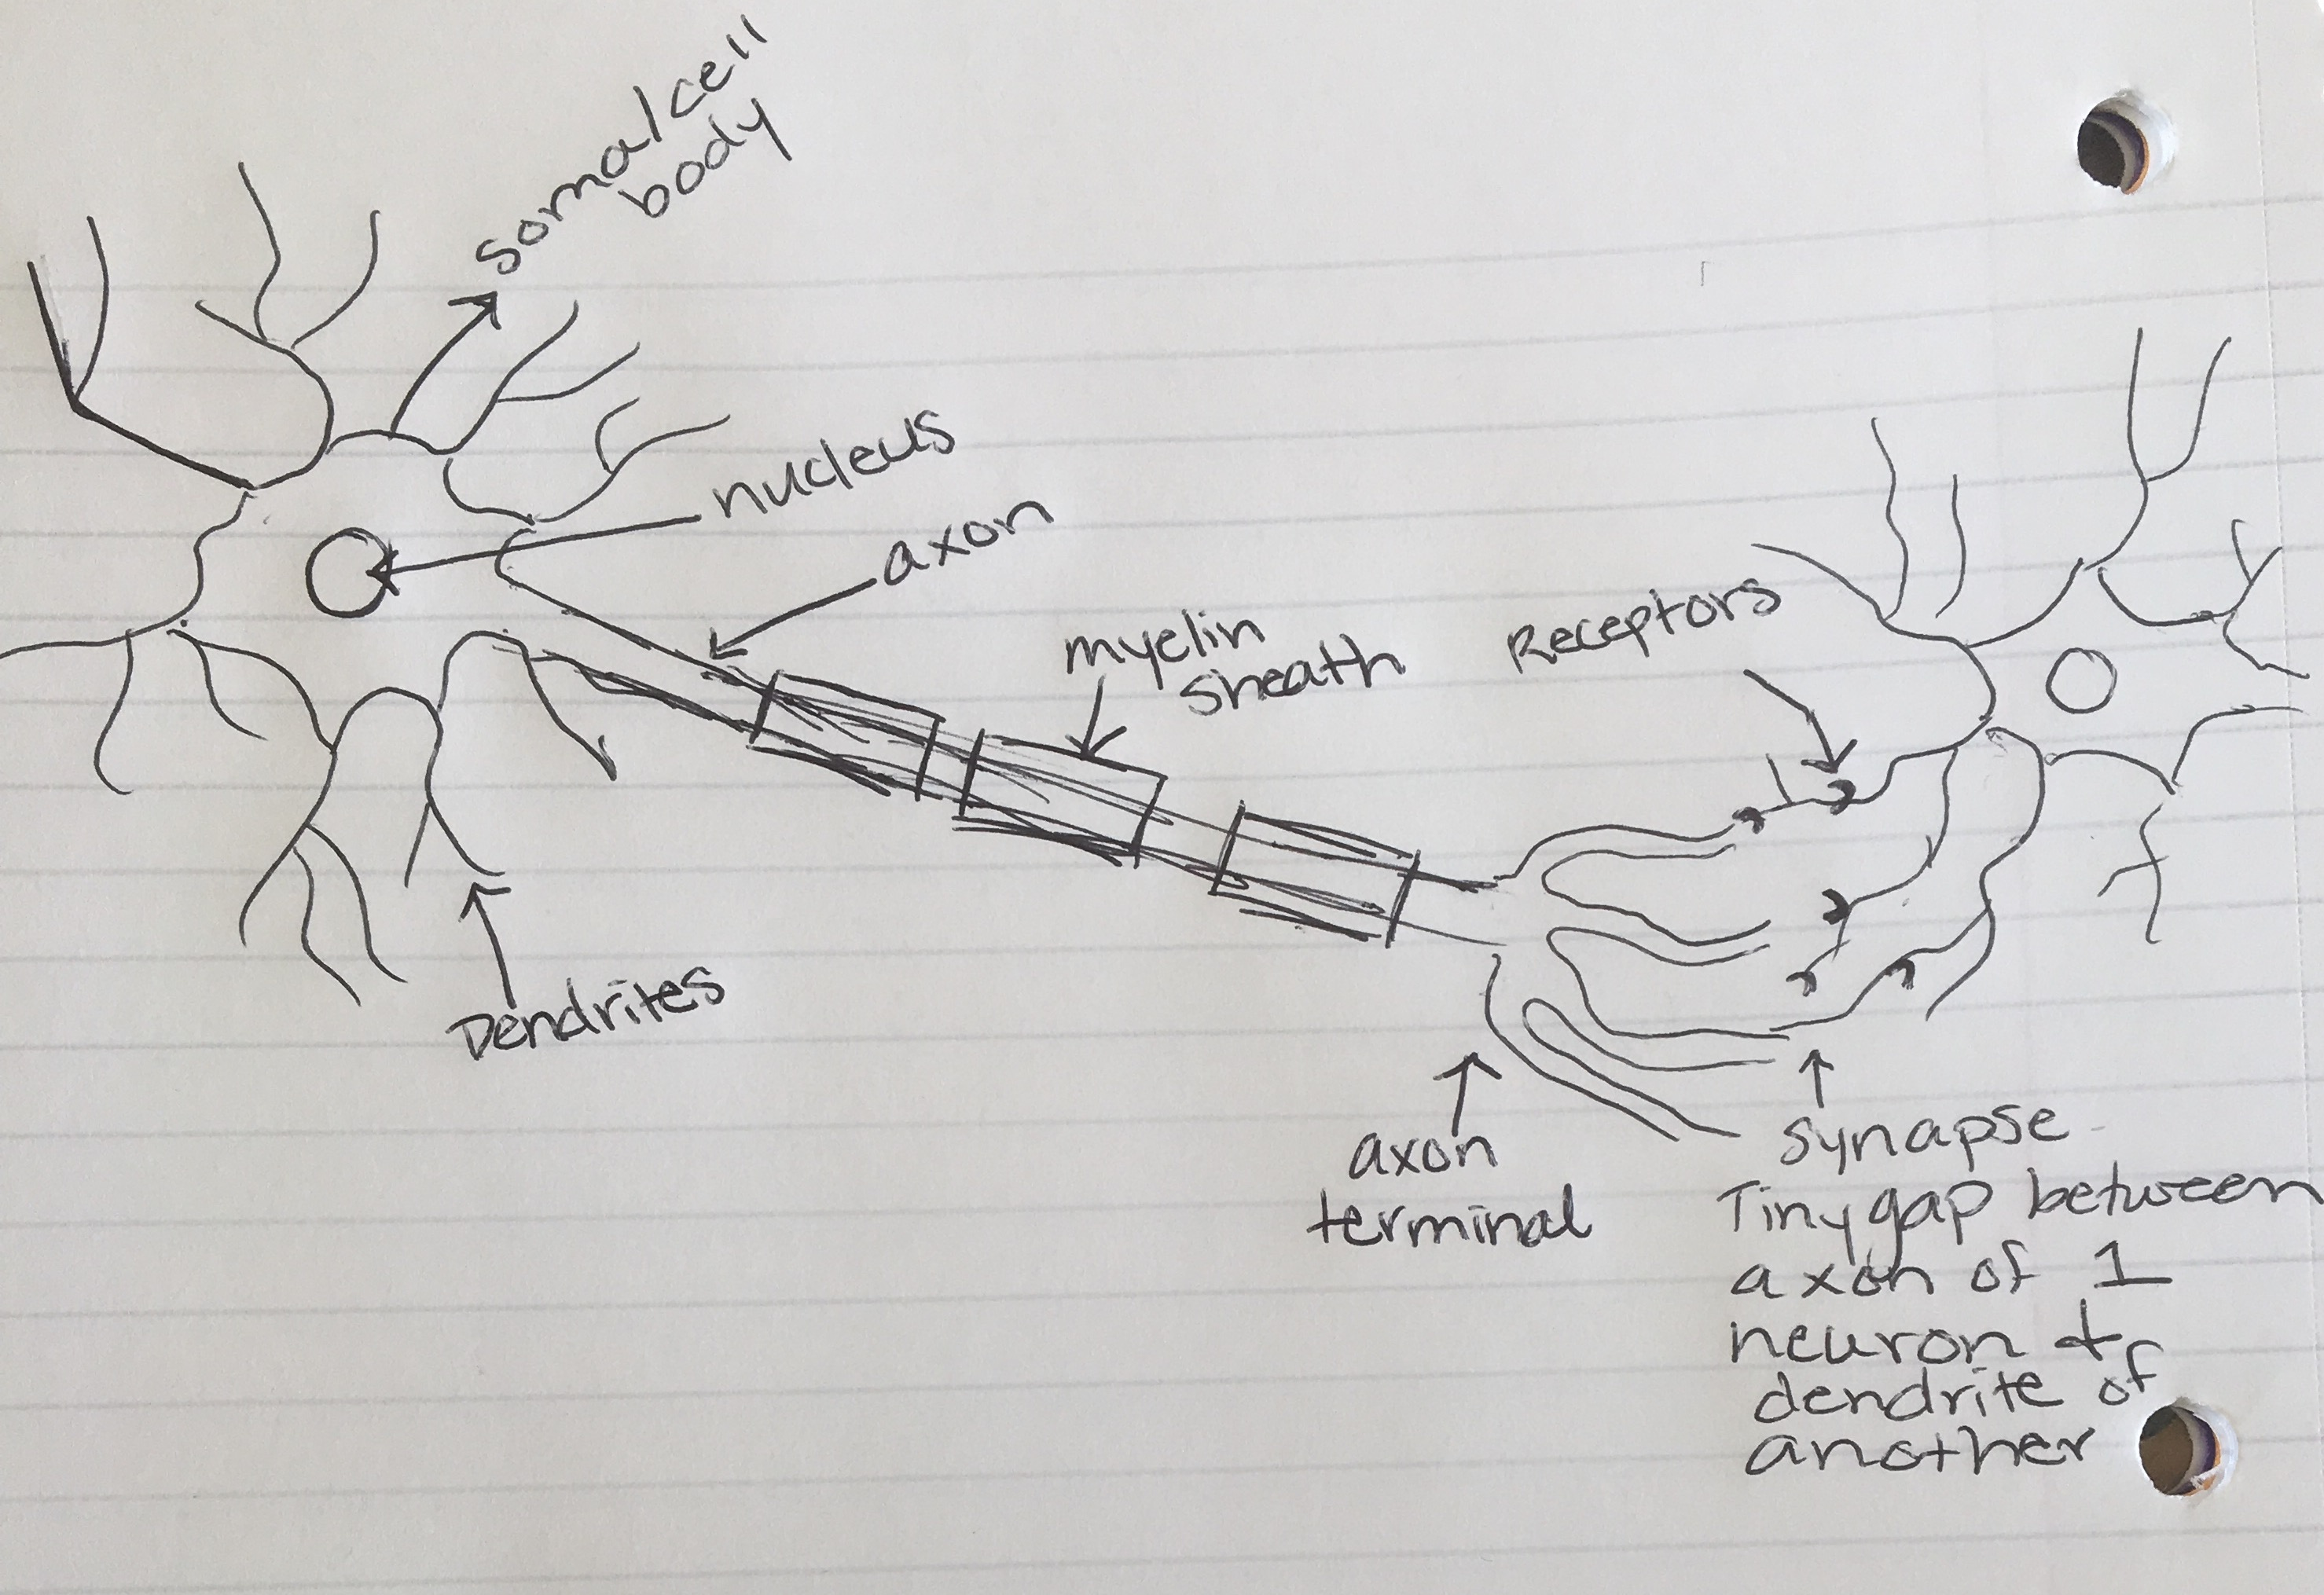 soma/cell
body
nucleus
axon
myelin
sheath
Receptors
Dendrites
axon
terminal
synapse -
Tiny gap between
axon of 1
neuron +
dendrite of
another